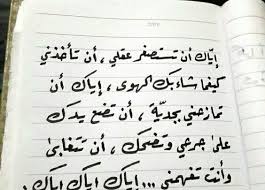 إياك أن تستصغر عقلي ، أن تأخذني
كيفما شاء بك الهوى ، إياك أن
تمازحني بجدية ، إياك أن تضع يدك
على جرحي وتضحك ، أن تتغابى
وأنت تفهمني ... إياك إياك إياك !